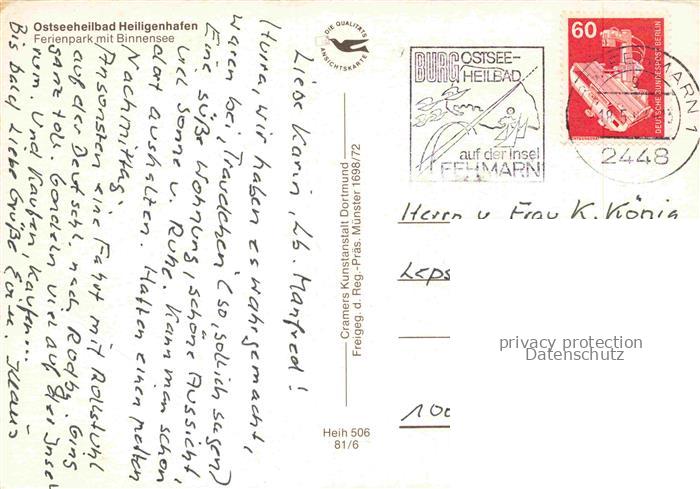 Ostseeheilbad Heiligenhafen
Ferienpark mit Binnensee
DIE QUALITÄTS
ANSICHTSKARTE
Liebe Karin, Lb. Manfred!
Hurra, wir haben es wahrgemacht,
waren bei "Traudchen" (so, sollich sagen)
Eine süße Wohnung, schöne Aussicht,
viel Sonne u. Ruhe. Kann man schon
dort aushalten. Hatten einen netten
Nachmittag.
Ansonsten eine Fahrt mit Rollstuhl
auf der "Deutschl." nach Rødby. Ging
ganz toll. Gondeln viel auf der Insel
rum. Und kaufen, kaufen...
Bis bald Liebe Grüße Eure. Klaus
Cramers Kunstanstalt Dortmund
Freigeg. d. Reg.-Präs. Münster 1698/72
Heih 506
81/6
BURG OSTSEE-
HEILBAD
auf der Insel
FEHMARN
60
DEUTSCHE BUNDESPOST BERLIN
2448
Herrn u Frau K. König
Leps
100
privacy protection
Datenschutz